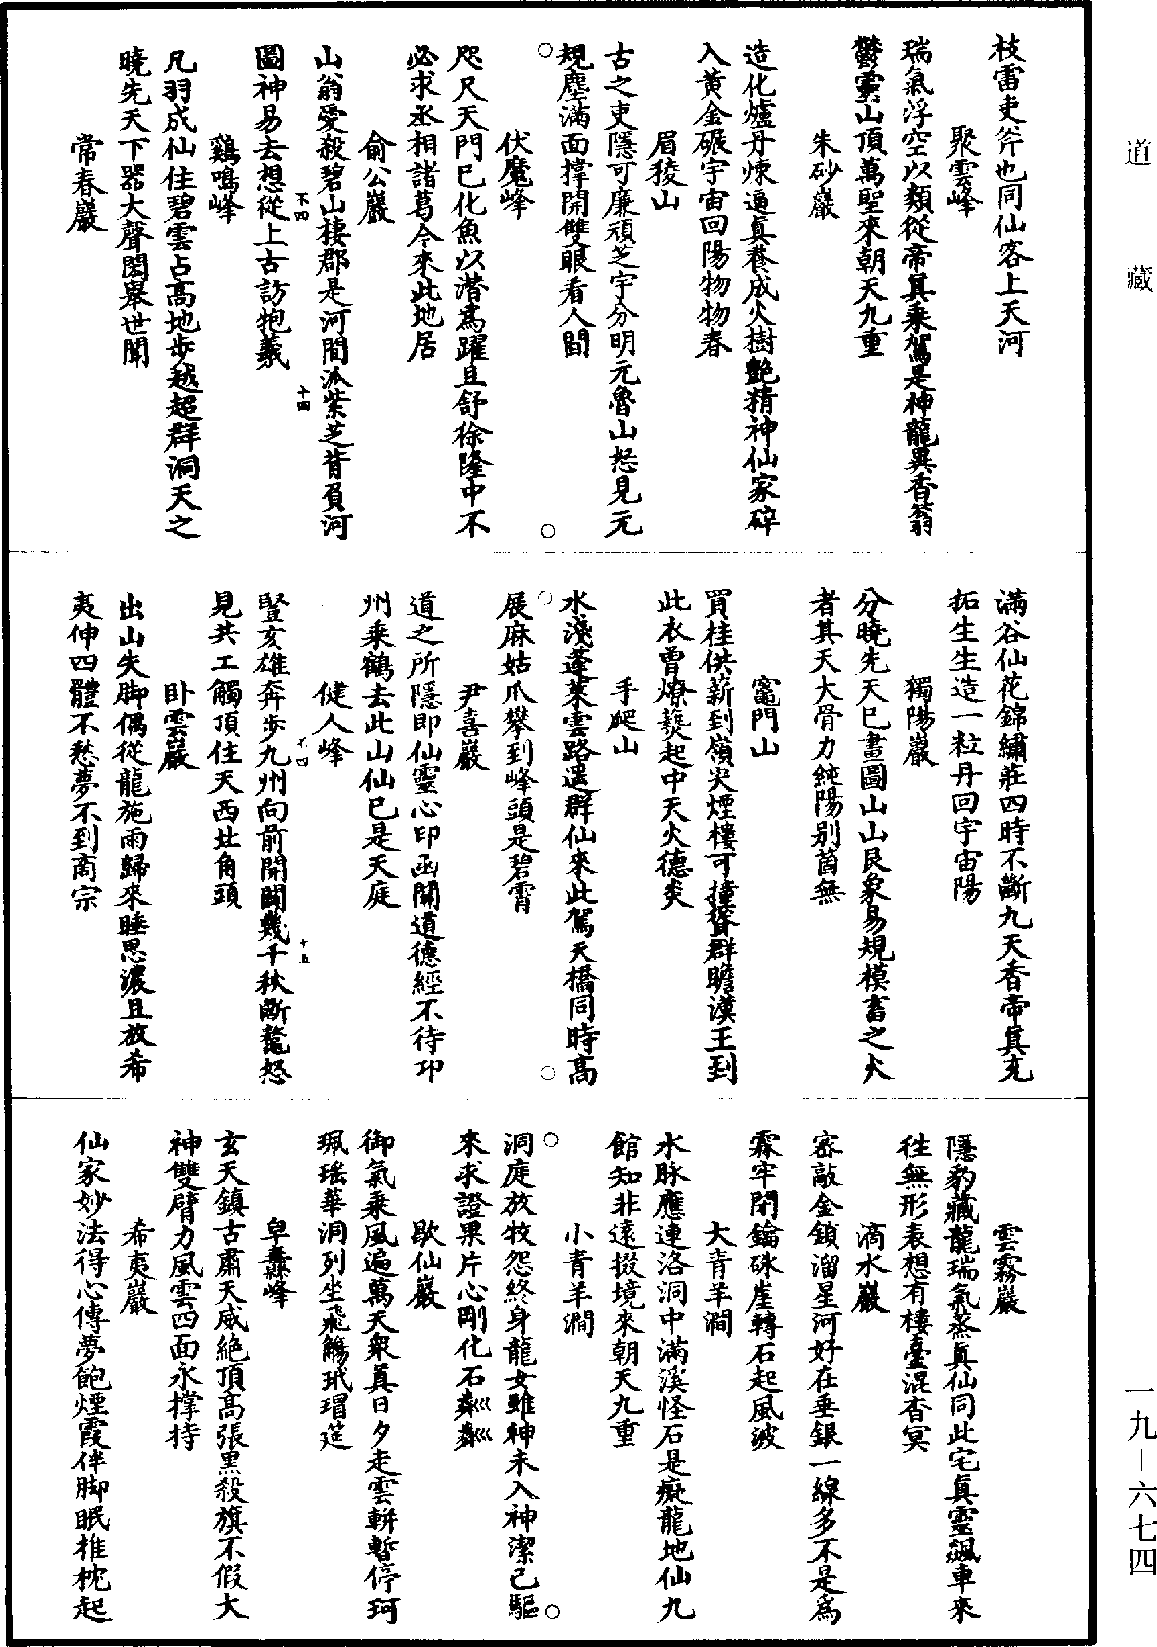 道藏
枝雷吏斧也同仙客上天河
聚雲峰
瑞氣浮空以類從帝真乘駕是神龍異香蓊
鬱靈山頂萬聖來朝天九重
朱砂巖
造化爐丹煉逼真養成火樹艷精神仙家碎
入黃金碾宇宙回陽物物春
眉稜山
古之吏隱可廉頑芝宇分明元魯山怒見元
規塵滿面撑開雙眼看人間
伏魔峰
咫尺天門已化魚以潜為躍且舒徐隆中不
必求丞相諸葛今來此地居
俞公巖
山翁愛殺碧山棲郡是河間派紫芝昔負河
圖神易去想從上古訪牺羲
鷄鳴峰
凡羽成仙住碧雲占高地步越超群洞天之
曉先天下器大聲閎舉世聞
常春巖
滿谷仙花錦繡莊四時不斷九天香帝真充
拓生生造一粒丹回宇宙陽
獨陽巖
分曉先天已畫圖山山艮象易規模畜之大
者其天大骨力純陽別茴無
竈門山
買桂供薪到嶺尖煙樓可撞聳群瞻漢王到
此衣曾燎爇起中天火德炎
手爬山
水淺蓬萊雲路遥群仙來此駕天橋同時高
展麻姑爪攀到峰頭是碧霄
尹喜巖
道之所隱即仙靈心印函關道德經不待卭
州乘鶴去此山仙已是天庭
健人峰
豎亥雄奔步九州向前開闢幾千秋斷鼇怒
見共工觸頂住天西北角頭
卧雲巖
出山失脚偶從龍施雨歸來睡思濃且放希
夷伸四體不愁夢不到商宗
雲霧巖
隱豹藏龍瑞氣蒸真仙同此宅真靈飆車來
往無形表想有樓臺混杳冥
滴水巖
密敲金鎖溜星河好在垂銀一線多不是為
霖牢閉鑰硃崖轉石起風波
大青羊澗
水脉應連洛洞中滿溪怪石是癡龍地仙九
館知非遠掇境來朝天九重
小青羊澗
洞庭放牧怨終身龍女雖神未入神潔己驅
來求證果片心剛化石粼粼
歇仙巖
御氣乘風遍萬天衆真日夕走雲軿暫停珂
珮瑶華洞列坐飛觴玳瑁筵
皁纛峰
玄天鎮古肅天威絶頂高張黑殺旗不假大
神雙臂力風雲四面永撑持
希夷巖
仙家妙法得心傳夢飽煙霞伴脚眠推枕起
一九—六七四